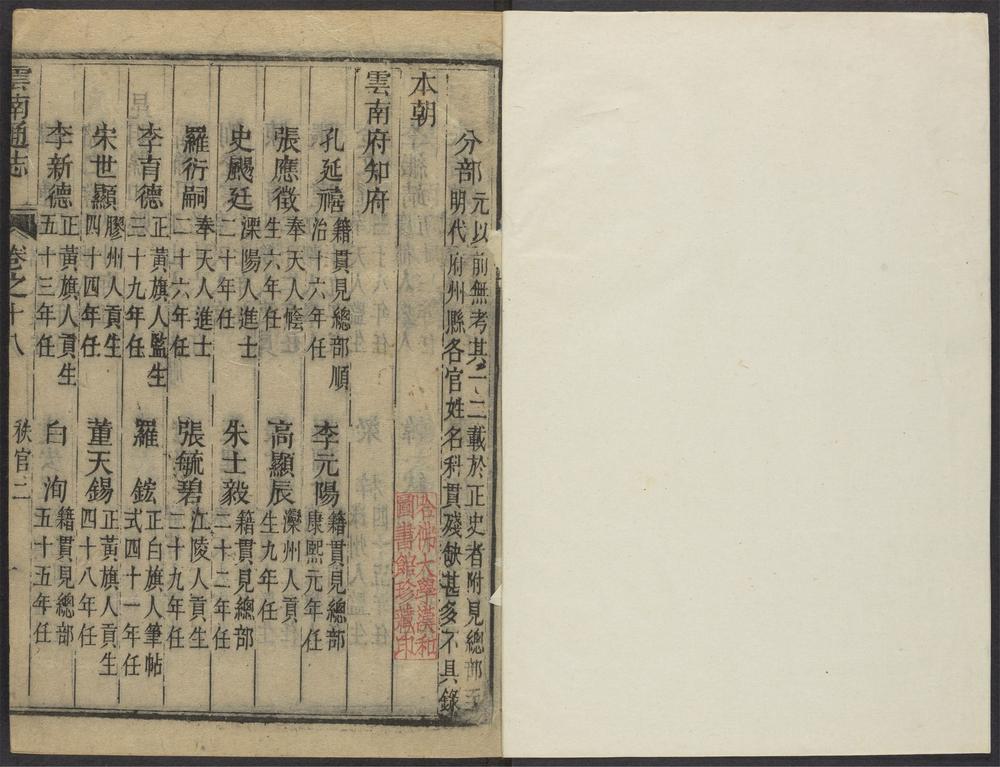 分部元以前無考其一二載於正史者附見總部至
明代府州縣各官姓名科貫殘缺甚多不具錄
本朝
雲南府知府
孔延禧籍貫見總部順
治十六年任
李元陽籍貫見總部
康熙元年任
張應徵奉天人廕
生六年任
高顯辰灤州人貢
生九年任
史颺廷溧陽人進士
二十年任
朱士毅籍貫見總部
二十二年任
羅衍嗣奉天人進士
二十六年任
張毓碧江陵人貢生
二十九年任
李育德正黃旗人監生
三十九年任
羅鋐正白旗人筆帖
式四十一年任
宋世顯膠州人貢生
四十四年任
董天錫正黃旗人貢生
四十八年任
李新德正黃旗人貢生
五十三年任
白洵籍貫見總部
五十五年任
雲南通志 卷之十八 秩官二 一
哈佛大學漢和
圖書館珍藏印